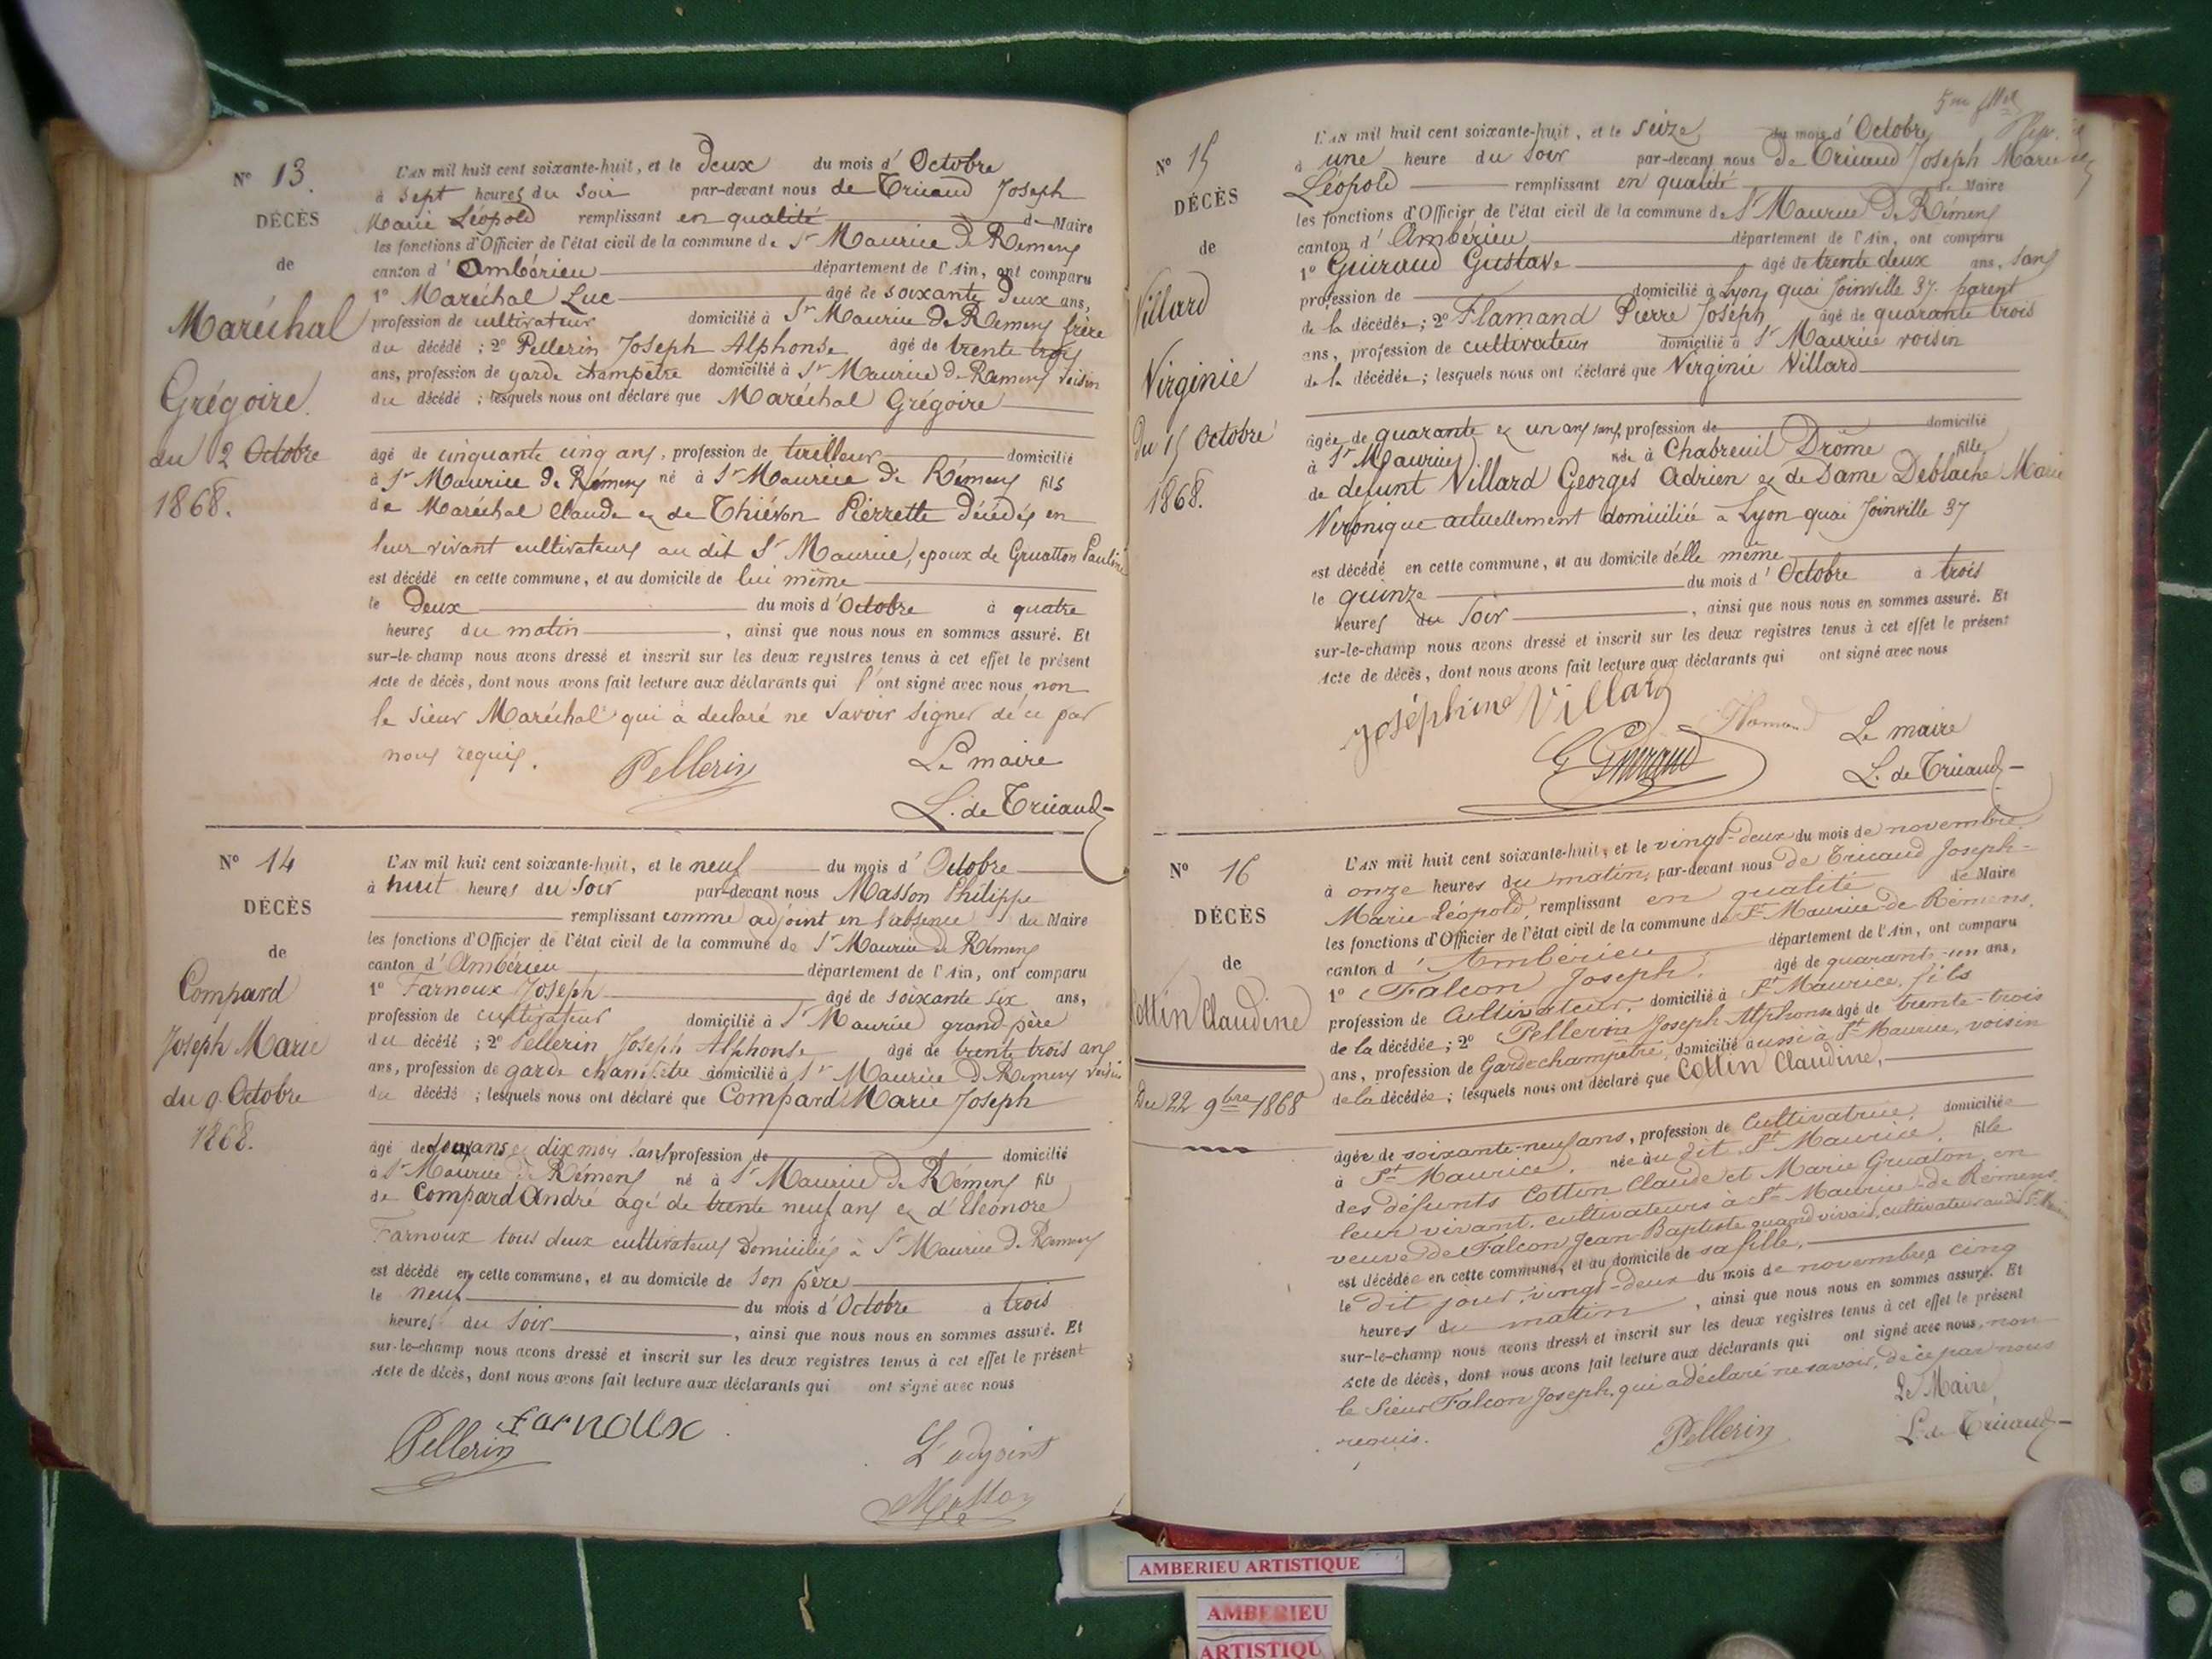 Nº 13.
DÉCÈS
de
Maréchal
Grégoire.
du 2 Octobre
1868.
L'AN mil huit cent soixante-huit, et le deux du mois d'Octobre
à sept heures du soir par-devant nous de Tricaud Joseph
Marie Léopold remplissant en qualité de Maire
les fonctions d'Officier de l'état civil de la commune de St Maurice de Rémens
canton d'Ambérieu département de l'Ain, ont comparu
1º Maréchal Luc âgé de soixante deux ans,
profession de cultivateur domicilié à St Maurice de Rémens frère
du décédé ; 2º Pellerin Joseph Alphonse âgé de trente trois
ans, profession de garde champêtre domicilié à St Maurice de Rémens voisin
du décédé ; lesquels nous ont déclaré que Maréchal Grégoire
âgé de cinquante cinq ans, profession de tailleur domicilié
à St Maurice de Rémens né à St Maurice de Rémens fils
de Maréchal Claude et de Thiévon Pierrette décédés en
leur vivant cultivateurs au dit St Maurice, epoux de Gruatton Pauline
est décédé en cette commune, et au domicile de lui même
le deux du mois d'Octobre à quatre
heures du matin , ainsi que nous nous en sommes assuré. Et
sur-le-champ nous avons dressé et inscrit sur les deux registres tenus à cet effet le présent
Acte de décès, dont nous avons fait lecture aux déclarants qui l'ont signé avec nous non
le sieur Maréchal qui a declaré ne savoir signer de ce par
nous requis.
Pellerin
Le maire
L. de Tricaud
Nº 14
DÉCÈS
de
Compard
Joseph Marie
du 9 Octobre
1868.
L'AN mil huit cent soixante-huit, et le neuf du mois d'Octobre
à huit heures du soir par-devant nous Masson Philippe
remplissant comme adjoint en l'absence du Maire
les fonctions d'Officier de l'état civil de la commune de St Maurice de Rémens
canton d'Ambérieu département de l'Ain, ont comparu
1º Farnoux Joseph âgé de soixante six ans,
profession de cultivateur domicilié à St Maurice grand-père
du décédé ; 2º Pellerin Joseph Alphonse âgé de trente trois ans
ans, profession de garde champêtre domicilié à St Maurice de Rémens voisin
du décédé ; lesquels nous ont déclaré que Compard Marie Joseph
âgé de ans et dix mois sans profession de domicilié
à St Maurice de Rémens né à St Maurice de Rémens fils
de Compard André agé de trente neuf ans et d'Eléonore
Farnoux tous deux cultivateurs domiciliés à St Maurice de Rémens
est décédé en cette commune, et au domicile de son père
le neuf du mois d'Octobre à trois
heures du soir , ainsi que nous nous en sommes assuré. Et
sur-le-champ nous avons dressé et inscrit sur les deux registres tenus à cet effet le présent
Acte de décès, dont nous avons fait lecture aux déclarants qui ont signé avec nous
Pellerin
Farnoux
L'adjoint
Masson
Nº 15
DÉCÈS
de
Villard
Virginie
du 15 Octobre
1868.
L'AN mil huit cent soixante-huit, et le seize du mois d'Octobre
à une heure du soir par-devant nous de Tricaud Joseph Marie
Léopold remplissant en qualité de Maire
les fonctions d'Officier de l'état civil de la commune de St Maurice de Rémens
canton d'Ambérieu département de l'Ain, ont comparu
1º Guiraud Gustave âgé de trente deux ans, sans
profession de domicilié à Lyon, quai Joinville 37. parent
de la décédée ; 2º Flamand Pierre Joseph âgé de quarante trois
ans, profession de cultivateur domicilié à St Maurice voisin
de la décédée ; lesquels nous ont déclaré que Virginie Villard
âgée de quarante et un ans sans profession de domicilié
à St Maurice née à Chabreuil Drôme fille
de defunt Villard Georges Adrien et de Dame Deblache Marie
Veronique actuellement domiciliée à Lyon quai Joinville 37
est décédé en cette commune, et au domicile d'elle même
le quinze du mois d'Octobre à trois
heures du soir , ainsi que nous nous en sommes assuré. Et
sur-le-champ nous avons dressé et inscrit sur les deux registres tenus à cet effet le présent
Acte de décès, dont nous avons fait lecture aux déclarants qui ont signé avec nous
Joséphine Villard
G Guiraud
Le maire
L. de Tricaud
Nº 16
DÉCÈS
de
Cottin Claudine
Du 22 9bre 1868
L'AN mil huit cent soixante-huit, et le vingt-deux du mois de novembre
à onze heures du matin, par-devant nous de Tricaud Joseph-
Marie-Léopold, remplissant en qualité de Maire
les fonctions d'Officier de l'état civil de la commune de St Maurice-de-Rémens,
canton d'Ambérieu département de l'Ain, ont comparu
1º Falcon Joseph, âgé de quarante-un ans,
profession de Cultivateur, domicilié à St Maurice, fils
de la décédée ; 2º Pellerin Joseph Alphonse âgé de trente-trois
ans, profession de Garde champêtre, domicilié aussi à St Maurice, voisin
de la décédée ; lesquels nous ont déclaré que Cottin Claudine,
âgée de soixante-neuf ans, profession de Cultivatrice, domiciliée
à St Maurice, née au dit St Maurice, fille
des défunts Cottin Claude et Marie Gruaton, en
leur vivant, cultivateurs à St Maurice-de-Rémens,
veuve de Falcon Jean-Baptiste quand vivait, cultivateur audit St Maurice
est décédée en cette commune, et au domicile de sa fille,
le dit jour, vingt-deux du mois de novembre à cinq
heures du matin , ainsi que nous nous en sommes assuré. Et
sur-le-champ nous avons dressé et inscrit sur les deux registres tenus à cet effet le présent
Acte de décès, dont nous avons fait lecture aux déclarants qui ont signé avec nous, non
le Sieur Falcon Joseph, qui a déclaré ne savoir, de ce par nous
requis.
Pellerin
Le Maire,
L. de Tricaud
AMBERIEU ARTISTIQUE
AMBERIEU
ARTISTIQU